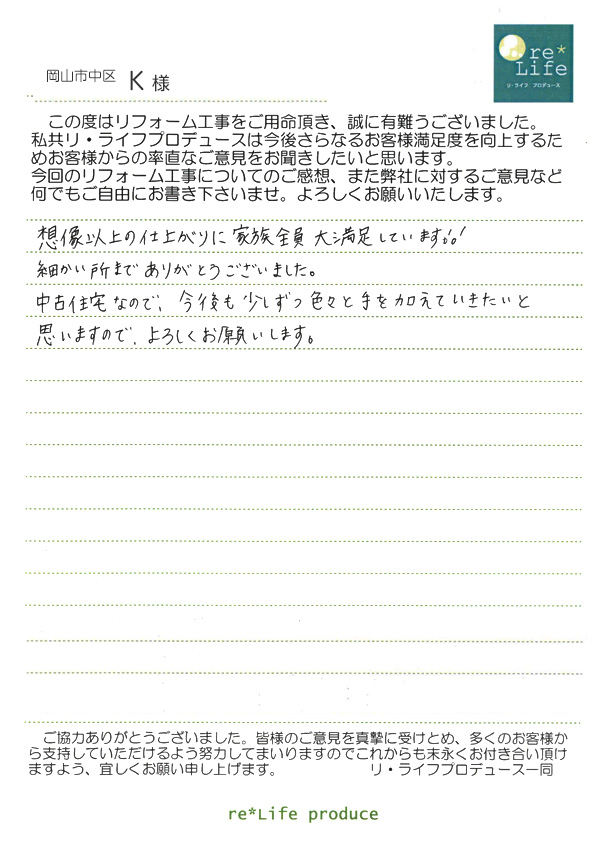 re*
Life
リ・ライフ プロデュース
岡山市中区 K 様
この度はリフォーム工事をご用命頂き、誠に有難うございました。
私共リ・ライフプロデュースは今後さらなるお客様満足度を向上するた
めお客様からの率直なご意見をお聞きしたいと思います。
今回のリフォーム工事についてのご感想、また弊社に対するご意見など
何でもご自由にお書き下さいませ。よろしくお願いいたします。
想像以上の仕上がりに家族全員大満足しています!!
細かい所までありがとうございました。
中古住宅なので、今後も少しずつ色々と手を加えていきたいと
思いますので、よろしくお願いします。
ご協力ありがとうございました。皆様のご意見を真摯に受けとめ、多くのお客様か
ら支持していただけるよう努力してまいりますのでこれからも末永くお付き合い頂け
ますよう、宜しくお願い申し上げます。 リ・ライフプロデュース一同
re*Life produce